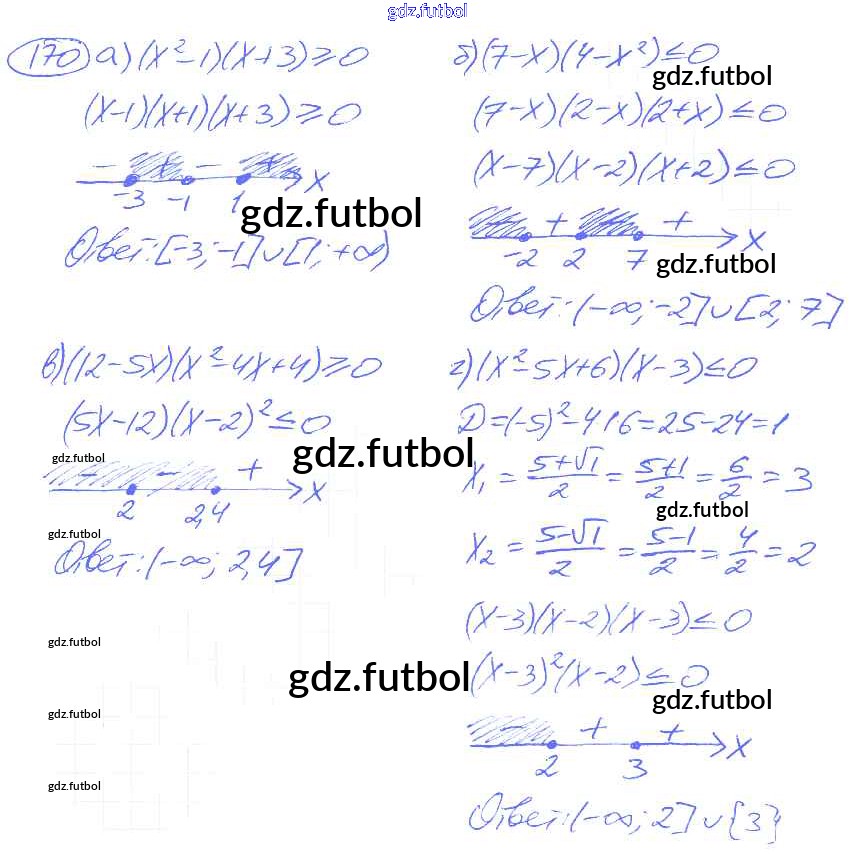 gdz.futbol
170 а) (x²-1)(x+3)≥0
(x-1)(x+1)(x+3)≥0
- + - + x
-3 -1 1
gdz.futbol
Ответ: [-3; -1]∪[1; +∞)
б) (7-x)(4-x²)≤0
gdz.futbol
(7-x)(2-x)(2+x)≤0
(x-7)(x-2)(x+2)≤0
- + - + x
-2 2 7
gdz.futbol
Ответ: (-∞; -2]∪[2; 7]
в) (12-5x)(x²-4x+4)≥0
(5x-12)(x-2)²≤0
gdz.futbol
gdz.futbol
- - + x
2 2,4
gdz.futbol
Ответ: (-∞; 2,4]
г) (x²-5x+6)(x-3)≤0
D=(-5)²-4·1·6=25-24=1
x₁ = (5+√1)/2 = (5+1)/2 = 6/2 = 3
gdz.futbol
x₂ = (5-√1)/2 = (5-1)/2 = 4/2 = 2
(x-3)(x-2)(x-3)≤0
gdz.futbol
gdz.futbol
(x-3)²(x-2)≤0
gdz.futbol
gdz.futbol
- + + x
2 3
gdz.futbol
Ответ: (-∞; 2]∪{3}